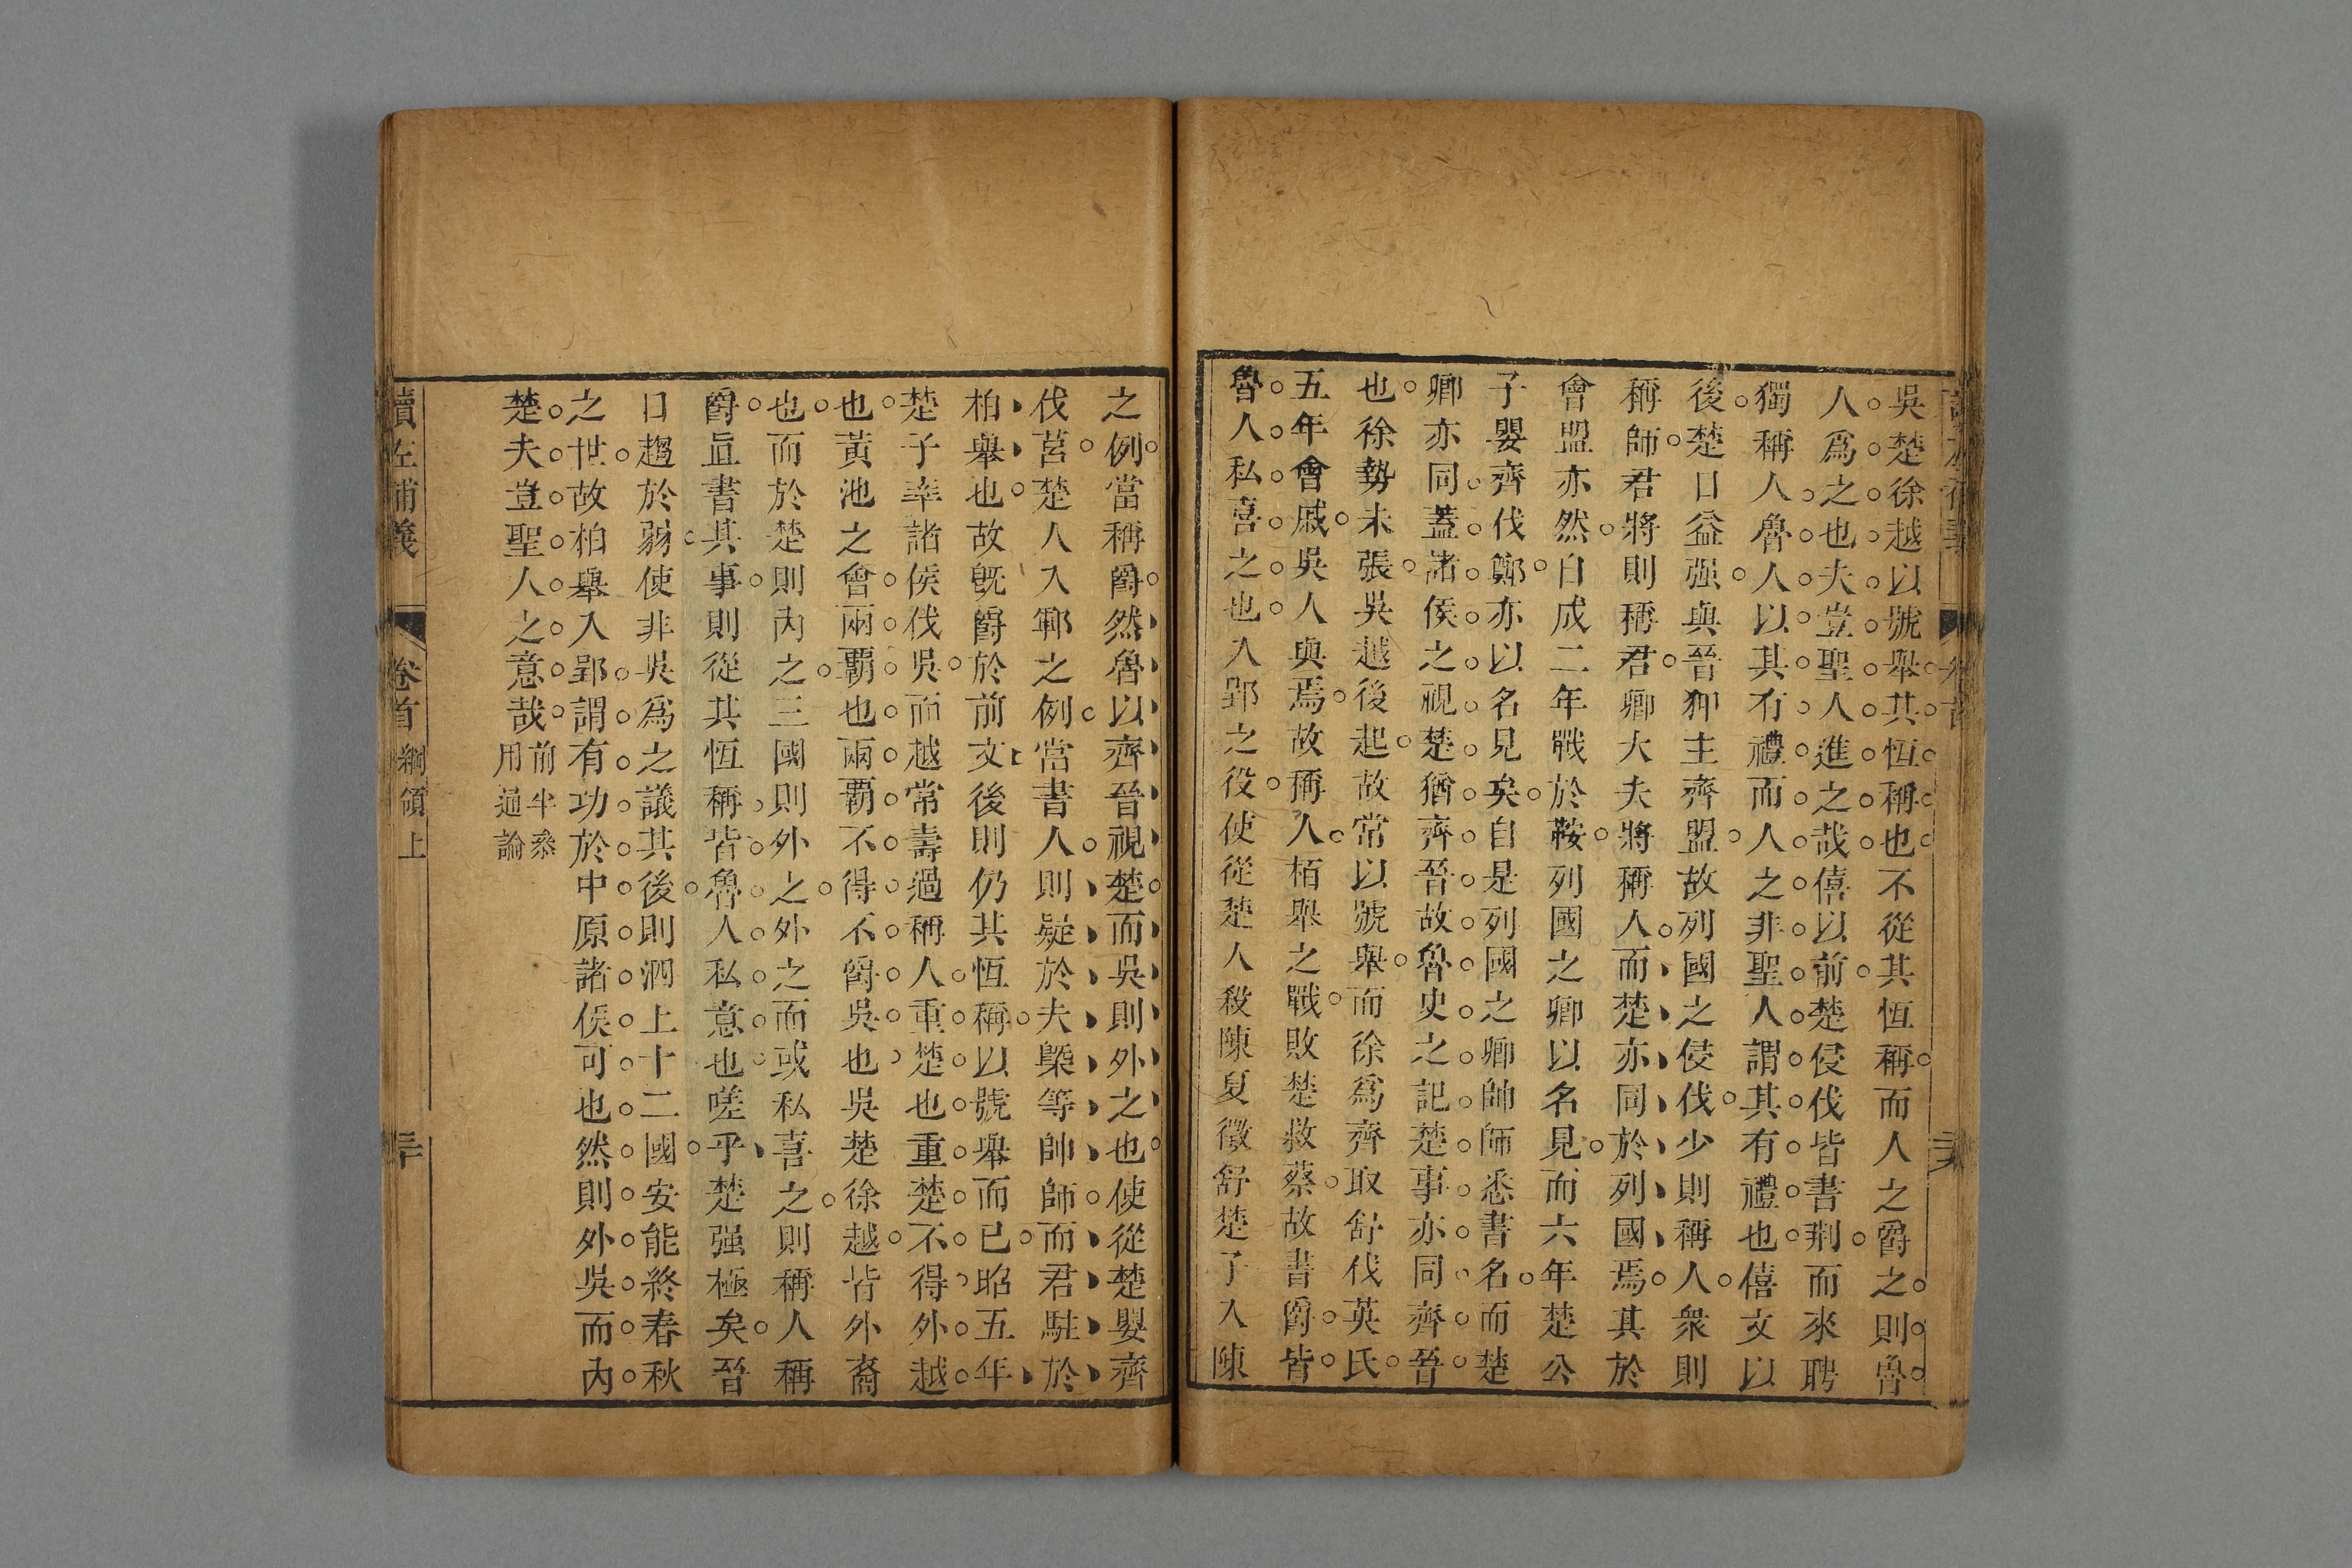 吳楚徐越以號舉其恒稱也不從其恒稱而人之爵之則魯
人爲之也夫豈聖人進之哉僖以前楚侵伐皆書荆而來聘
獨稱人魯人以其有禮而人之非聖人謂其有禮也僖文以
後楚日益强與晉狎主齊盟故列國之侵伐少則稱人衆則
稱師君將則稱君卿大夫將稱人而楚亦同於列國焉其於
會盟亦然自成二年戰於鞍列國之卿以名見而六年楚公
子嬰齊伐鄭亦以名見矣自是列國之卿帥師悉書名而楚
卿亦同蓋諸侯之視楚猶齊晉故魯史之記楚事亦同齊晉
也徐勢未張吳越後起故常以號舉而徐爲齊取舒伐英氏
五年會戚吳人與焉故稱人栢舉之戰敗楚救蔡故書爵皆
魯人私喜之也入郢之役使從楚人殺陳夏徵舒楚子入陳
之例當稱爵然魯以齊晉視楚而吳則外之也使從楚嬰齊
伐莒楚人入鄆之例當書人則疑於夫槩等帥師而君駐於
柏舉也故旣爵於前文後則仍其恒稱以號舉而已昭五年
楚子率諸侯伐吳而越常壽過稱人重楚也重楚不得外越
也黃池之會兩覇也兩覇不得不爵吳也吳楚徐越皆外裔
也而於楚則內之三國則外之外之而或私喜之則稱人稱
爵直書其事則從其恒稱皆魯人私意也嗟乎楚强極矣晉
日趨於弱使非吳爲之議其後則泗上十二國安能終春秋
之世故柏舉入郢謂有功於中原諸侯可也然則外吳而內
楚夫豈聖人之意哉
前半叅
用通論
讀左補義
卷首
綱領上
三十